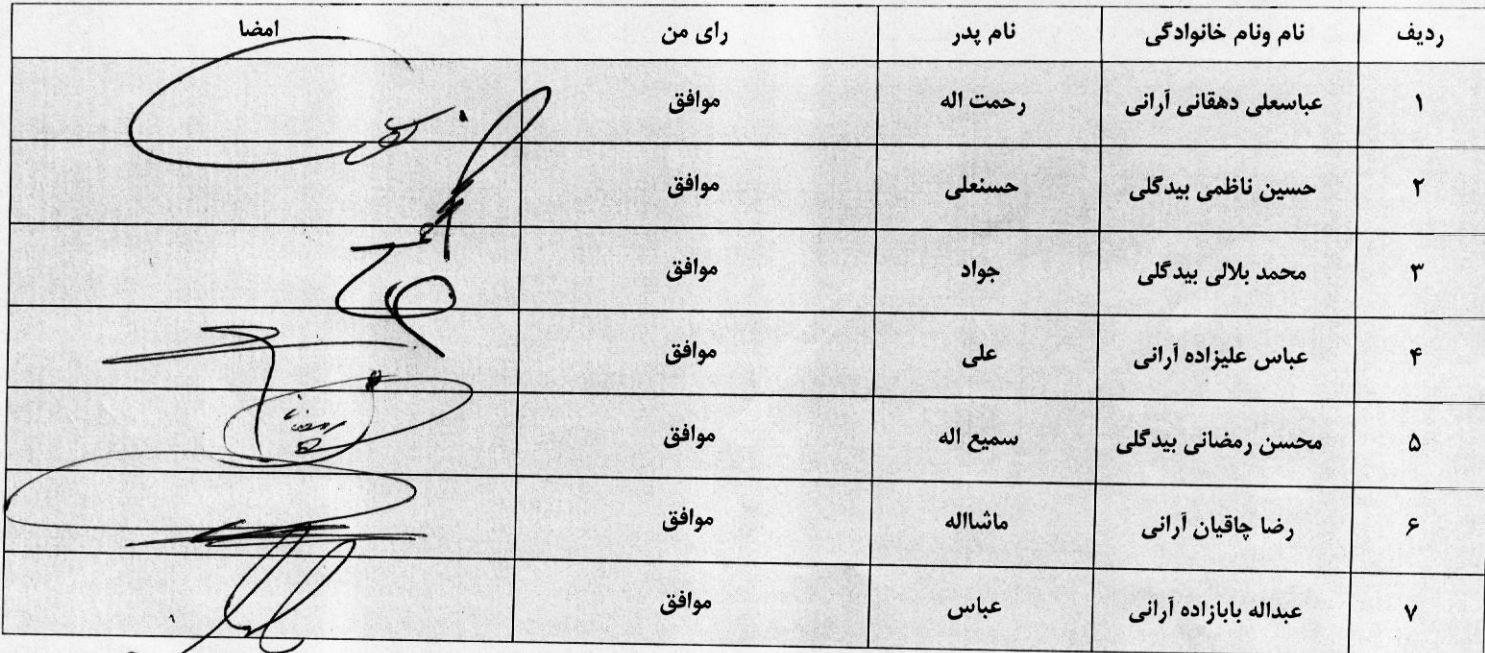 ردیف نام ونام خانوادگی نام پدر رای من امضا
۱ عباسعلی دهقانی آرانی رحمت اله موافق
۲ حسین ناظمی بیدگلی حسنعلی موافق
۳ محمد بلالی بیدگلی جواد موافق
۴ عباس علیزاده آرانی علی موافق
۵ محسن رمضانی بیدگلی سمیع اله موافق
۶ رضا چاقیان آرانی ماشااله موافق
۷ عبداله بابازاده آرانی عباس موافق